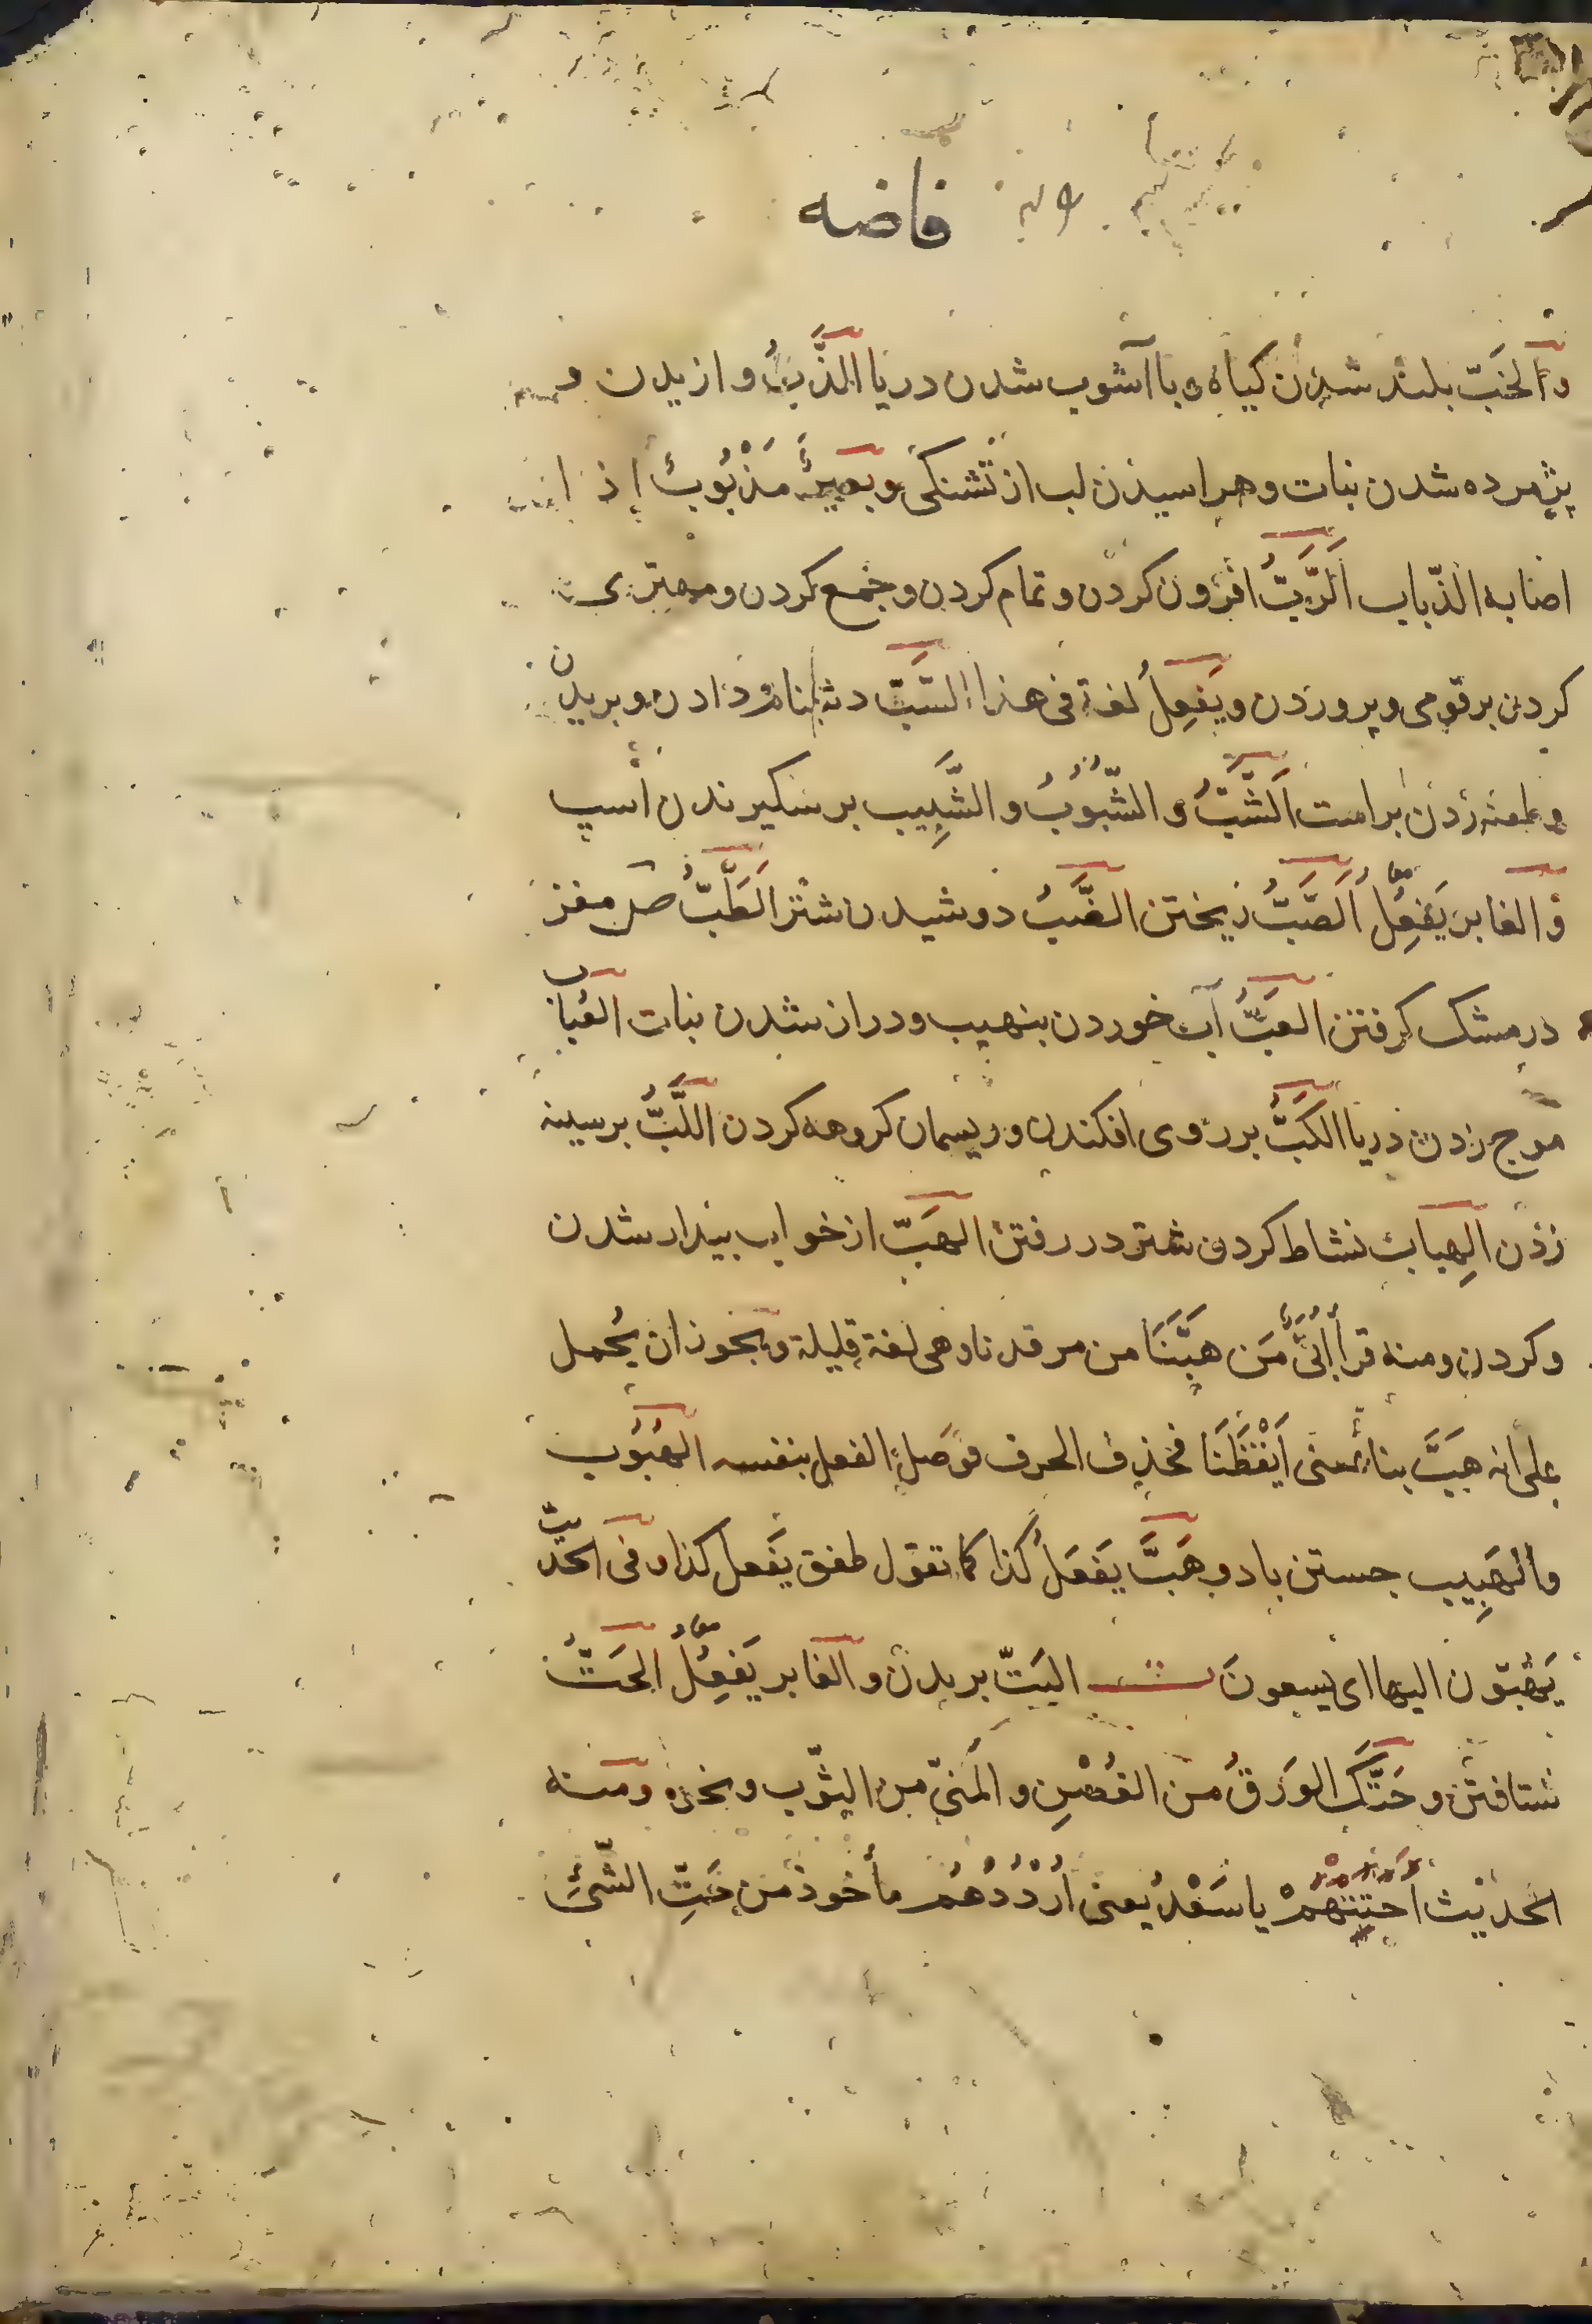 فاضه
والخَبّ بلند شدن كياه و با آشوب شدن دريا الذَّبُّ وازيدن و
پژمرده شدن نبات وهراسيذن لب از تشنكى وبعيرٌ مَذْبُوبٌ إذا
اصابه الذّباب الرَّبُّ افزون كردن وتمام كردن وجمع كردن ومهترى
كردن بر قومى وپروردن ويَفعِلُ لغة فى هذا السَّبّ دشنام دادن وبريدن
وطعنه زدن براست الشَّبُّ والشُّبُوبُ والشَّبِيب برسكيزندن اسپ
والغابر يَفعِلُ معًا الصَّبُّ ريختن الضَّبُ دوشيدن شتر الطَّبُّ
در مشك كرفتن العَبُّ آب خوردن بنهيب ودراز شدن نبات العُباب
موج زدن دريا الكَبُّ بر روى افكندن وريسمان كروهه كردن اللَّبُّ بر سينه
زذن الهِبابُ نشاط كردن شتر در رفتن الهَبّ از خواب بيدار شدن
وكردن ومنه قرأ أُبَىٌّ مَن هَبَّنَا من مرقدنا وهى لغة قليلة ويجوز ان يُحمل
على انه هَبَّ بنا بمعنى اَيْقَظَنَا فحُذِف الحرف فوَصَل الفعل بنفسه الهُبُوب
والهَبِيب جستن باد وهَبَّ يَفعَلُ كذا كما تقول طفق يَفعل كذا وفى الحديث
يَهُبّون اليها اى يسعونَ ت البَتّ بريدن والغابر يَفعِلُ معًا الحَتُّ
شتافتن وحَتُّكَ الورَقَ من الغُصْنِ والمَنىّ من الثّوب ونحوه ومنه
الحديث احتتهمْ يا سَعْدُ يعنى اُرْدُدْهُم مأخوذ من حَتِّ الشّىءِ